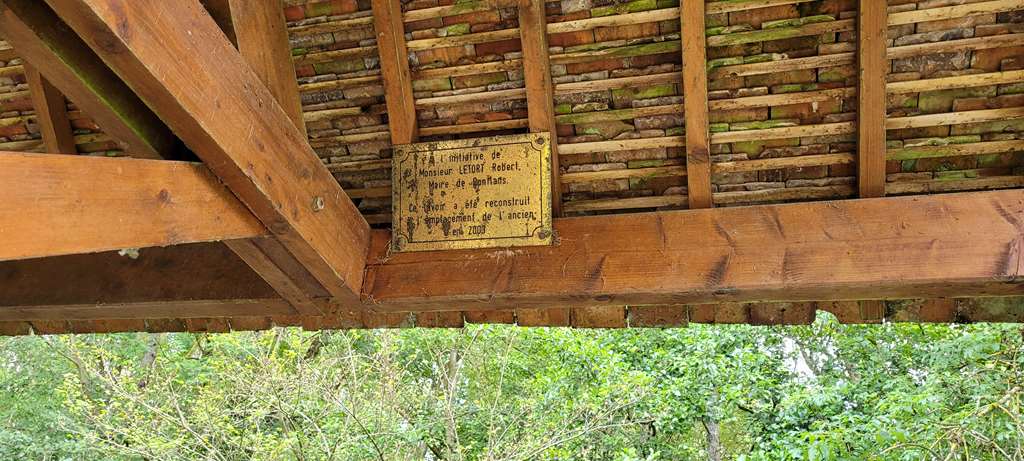 A l'initiative de
Monsieur LETORT Robert.
Maire de Conflans.
Ce lavoir a été reconstruit
à l'emplacement de l'ancien
en 2003